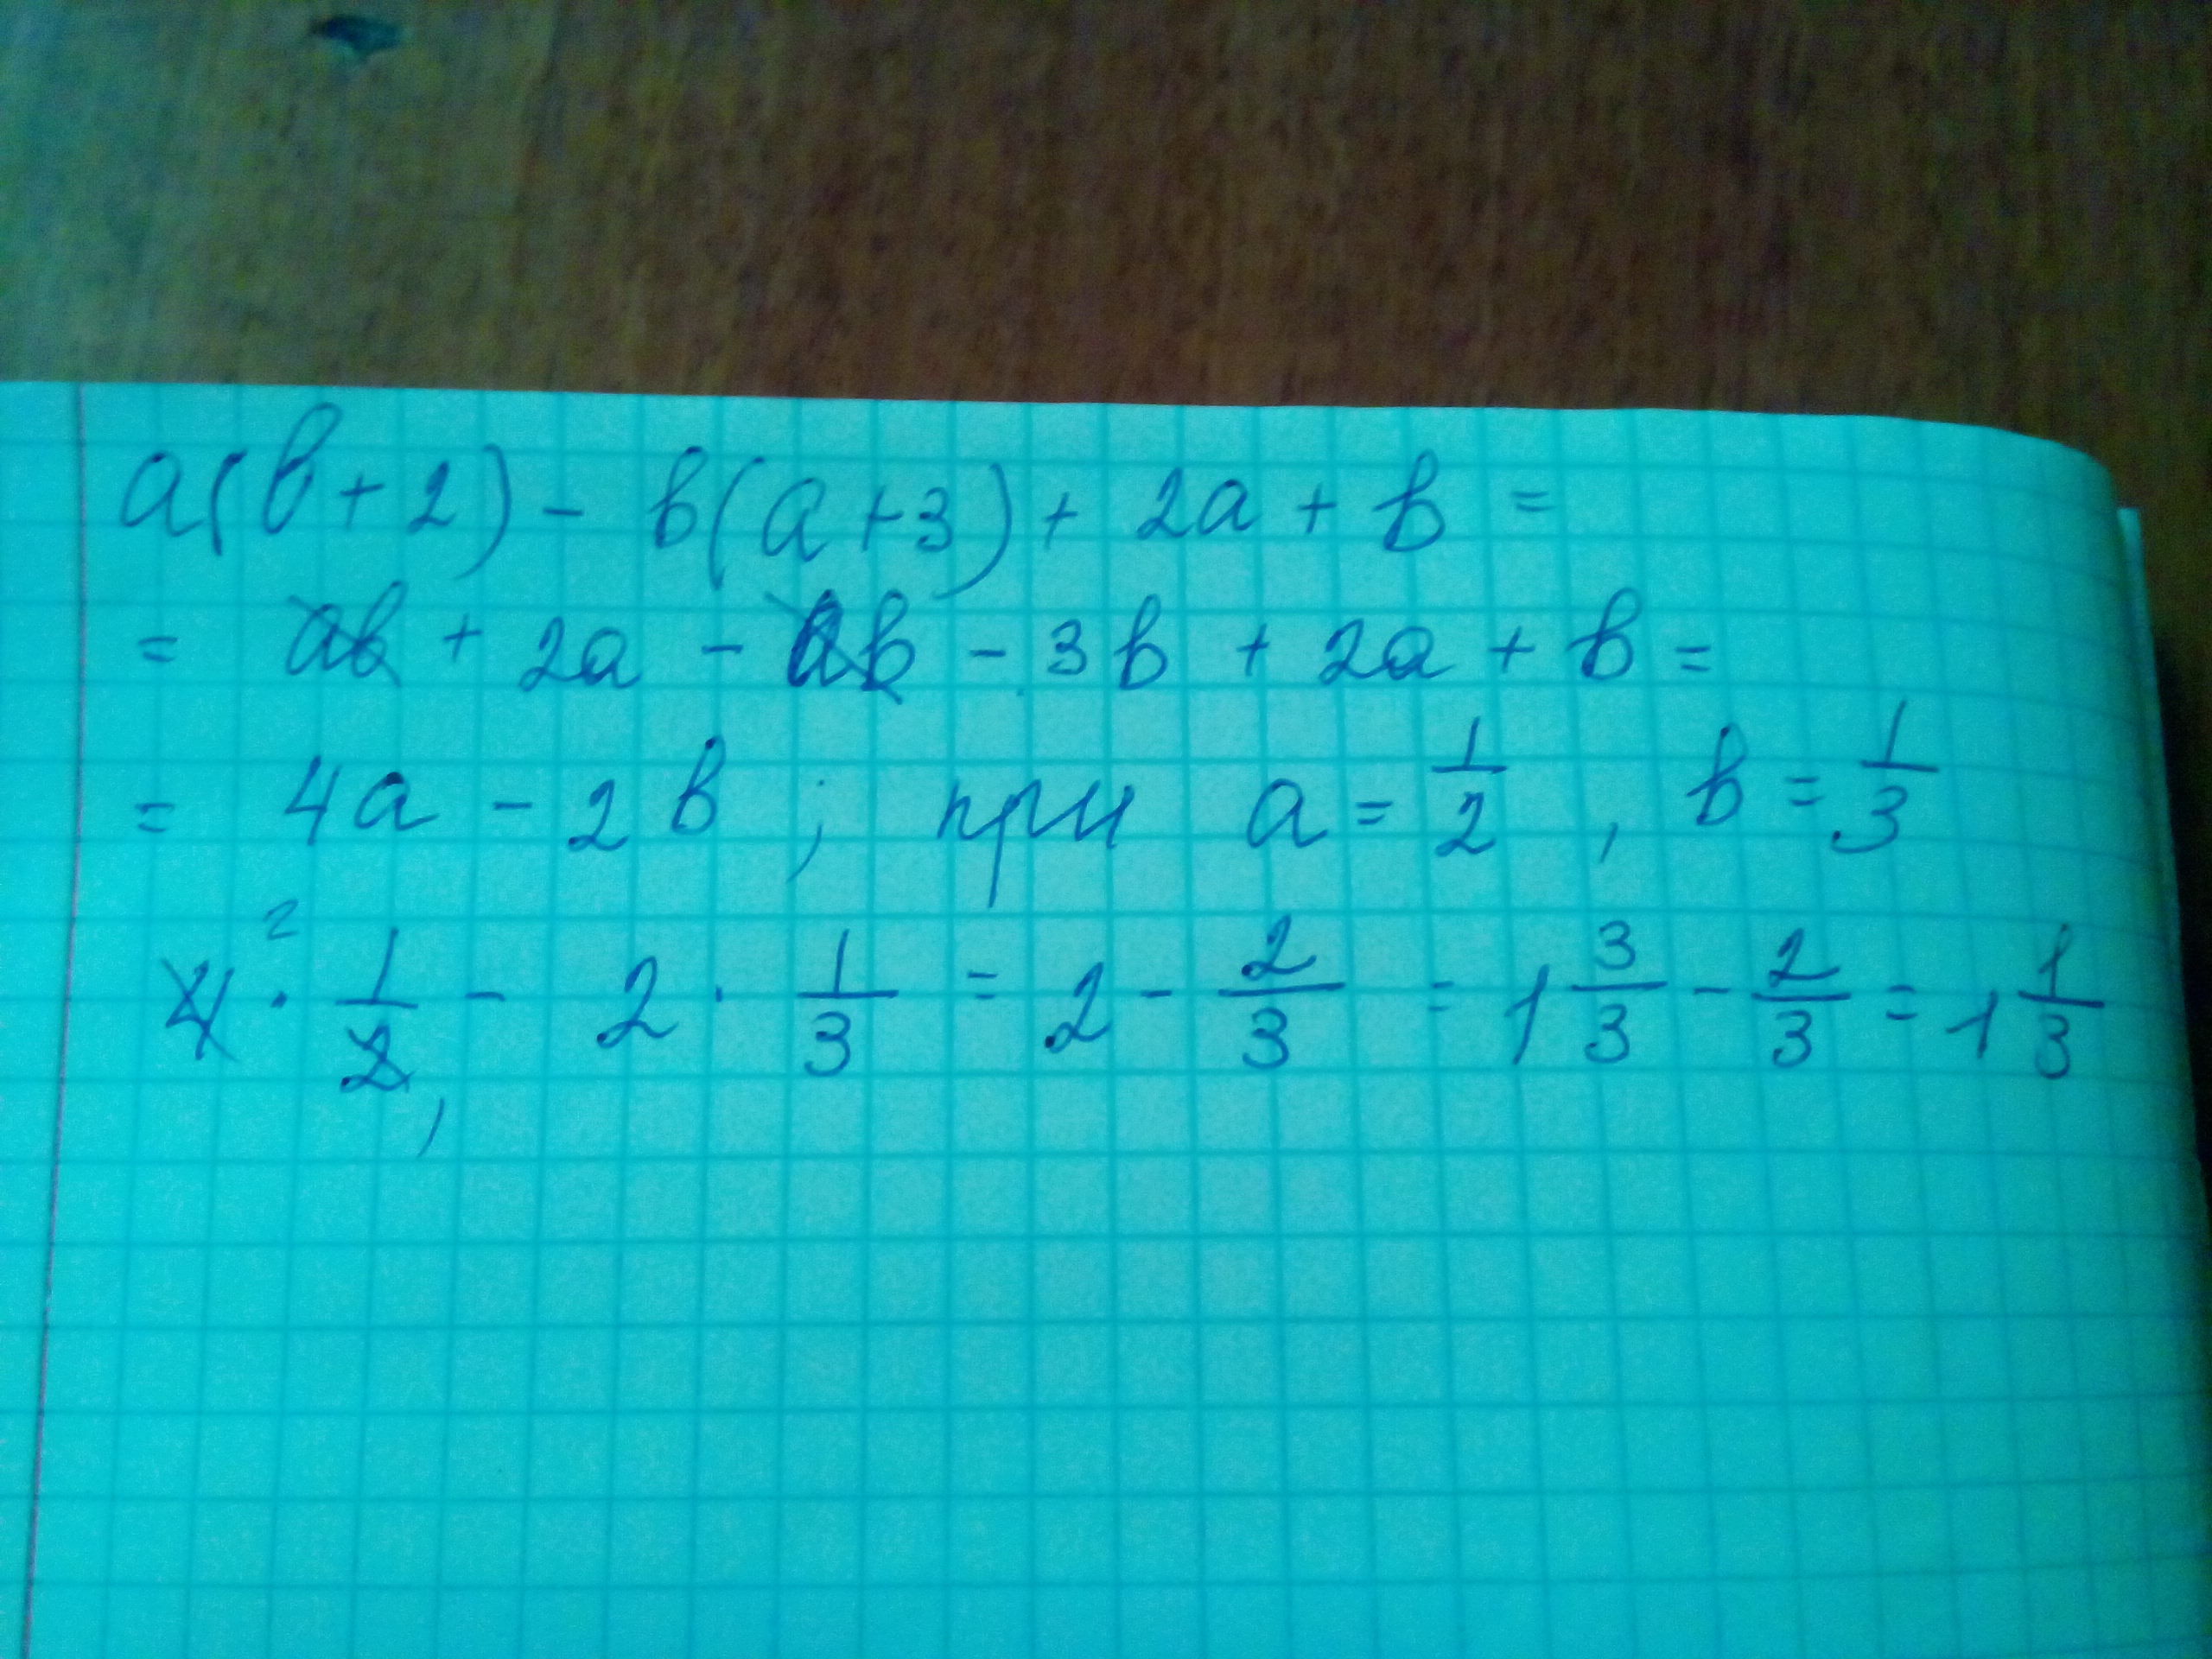 a(b+2) - b(a+3) + 2a + b =
= ab + 2a - ab - 3b + 2a + b =
= 4a - 2b ; при a = 1/2 , b = 1/3
4² · 1/2, - 2 · 1/3 = 2 - 2/3 = 1 3/3 - 2/3 = 1 1/3